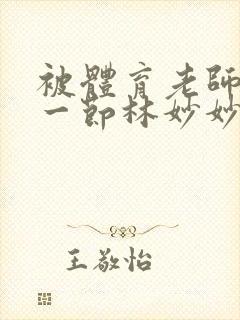 被體育老師
一節林妙妙
王敬怡